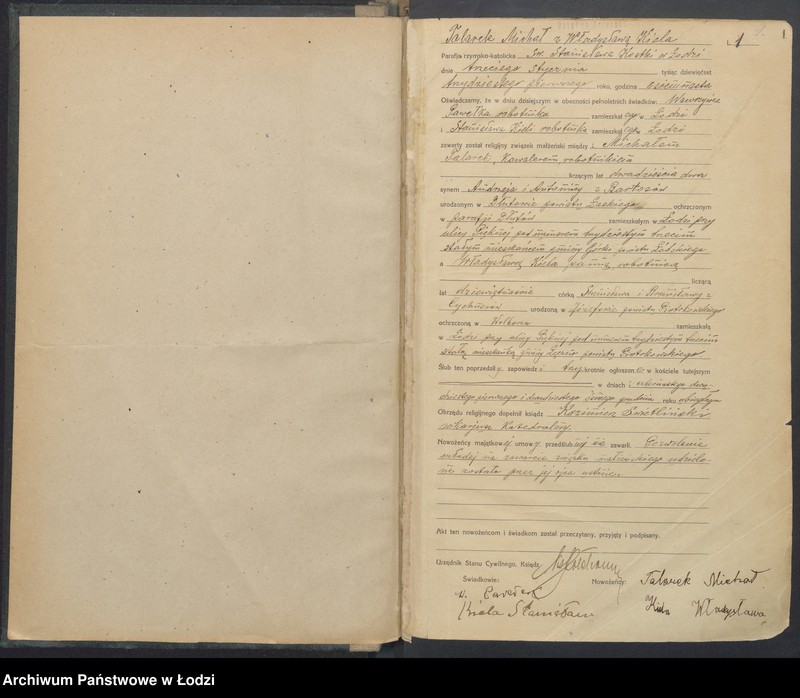 Talarek Michał z Władysławą Kiela
1
Parafja rzymsko-katolicka Św. Stanisława Kostki w Łodzi
dnia trzeciego stycznia tysiąc dziewięćset
trzydziestego pierwszego roku, godzina osiemnasta
Oświadczamy, że w dniu dzisiejszym w obecności pełnoletnich świadków: Wawrzyńca
Pawełka robotnika zamieszkałego w Łodzi
i Stanisława Kieli robotnika zamieszkałego w Łodzi
zawarty został religijny związek małżeński między: Michałem
Talarek, kawalerem, robotnikiem
liczącym lat dwadzieścia dwa
synem Andrzeja i Antoniny z
urodzonym w Dłutowie powiatu Łaskiego ochrzczonym
w parafji Dłutów zamieszkałym w Łodzi przy
ulicy Pięknej pod numerem trzydziestym trzecim
stałym mieszkańcem gminy Górki powiatu Łódzkiego
a Władysławą Kiela panną, robotnicą
liczącą
lat dziewiętnaście córką Stanisława i Bronisławy z
urodzoną w Józefowie powiatu Piotrkowskiego
ochrzczoną w Wolborzu zamieszkałą
w Łodzi przy ulicy Pięknej pod numerem trzydziestym trzecim
stałą mieszkanką gminy powiatu Piotrkowskiego
Ślub ten poprzedziły zapowiedzi trzykrotnie ogłoszone w kościele tutejszym
w dniach: czternastego dwu-
dziestego pierwszego i dwudziestego ósmego grudnia roku ubiegłego
Obrzędu religijnego dopełnił ksiądz Kazimierz Świetliński
wikarjusz Katedralny.
Nowożeńcy majątkowej umowy przedślubnej nie zawarli. Pozwolenie
młodej na zawarcie związku małżeńskiego udzielo-
ne zostało przez jej ojca ustnie.
Akt ten nowożeńcom i świadkom został przeczytany, przyjęty i podpisany.
Urzędnik Stanu Cywilnego, Ksiądz
Świadkowie: Nowożeńcy: Talarek Michał
Kiela Władysława
Kiela Stanisław
Archiwum Państwowe w Łodzi